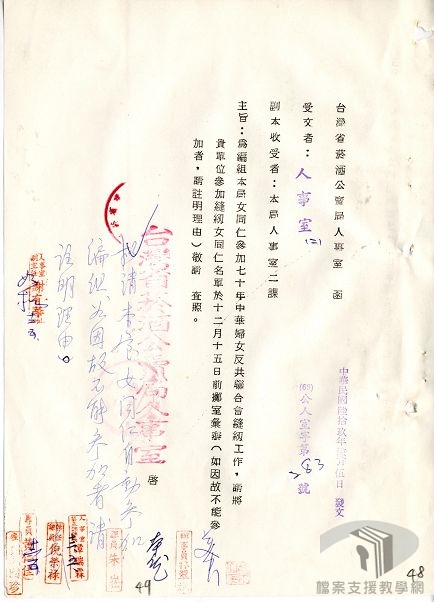 台灣省菸酒公賣局人事室　函
受文者：人事室(2)
副本收受者：本局人事室二課
中華民國陸拾玖年拾貳月伍日　發文
(69)公人室字第
283
號
主旨：為編組本局女同仁參加七十年中華婦女反共聯合會縫紉工作，請將
貴單位參加縫紉女同仁名單於十二月十五日前擲室彙辦（如因故不能參
加者，請註明理由）敬請　查照。
台灣省菸酒公賣局人事室
啓
擬請本室女同仁自動參加
編組，若因故不能參加者，請
註明理由。
49
48
檔案支援教學網